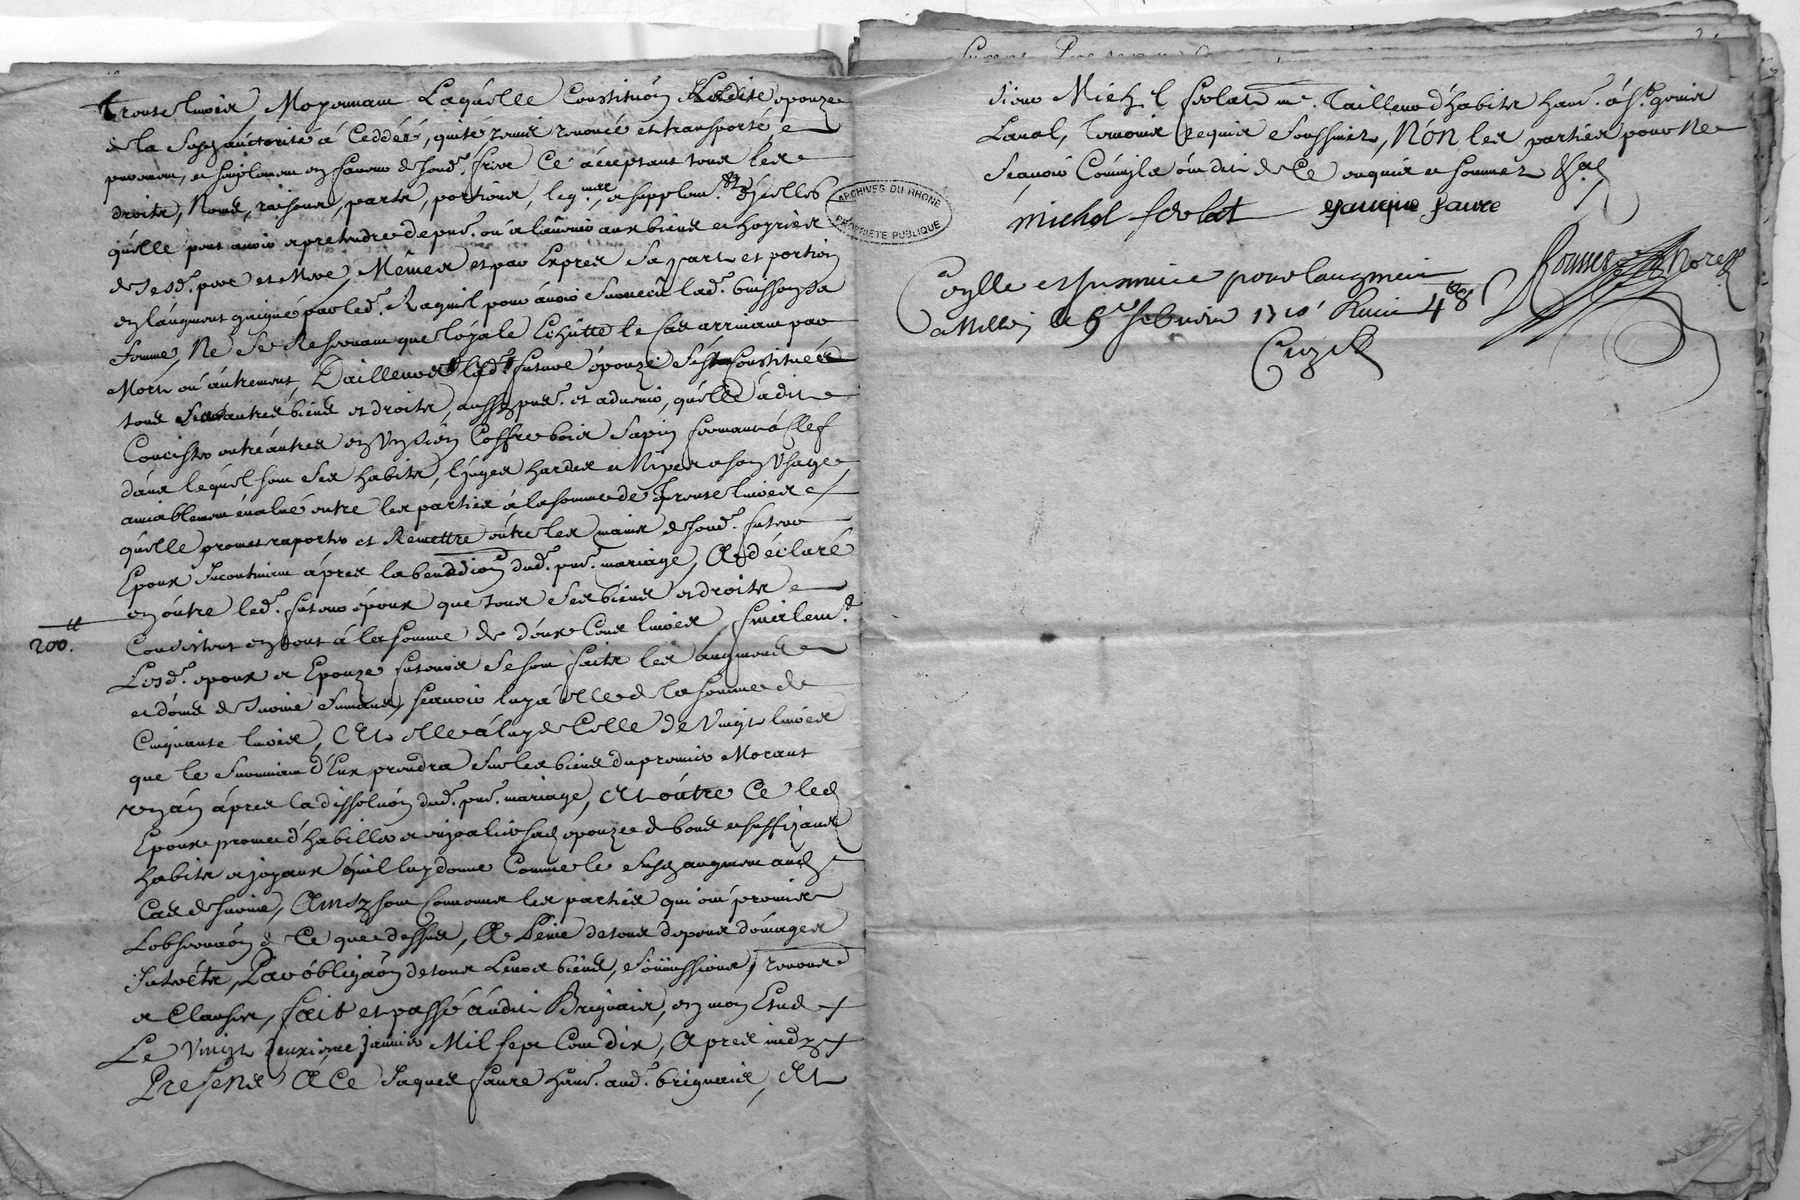 trente livres, Moyennant Laquelle Constituon Ladite epouze
de la Susd. auctorité à Ceddé, quité remis renoncé et transporté,
purement, et simplement en faveur de sond. frere Ce acceptant tous les
droits, Noms, raisons, parts, portions, leg.mes, et supplem.t d'Icelles
qu'elle peut avoir et pretendre de pnt. ou à l'advenir aux biens et hoyries
de sesd. pere et Mere, Mêmes et par Expres Sa part et portion
en l'augment gaigné par led. pour avoir Survecu lad. buisson Sa
femme, Ne Se Reservant que loyale Echutte le Cas arrivant par
Mort ou autrement, D'ailleurs lad. future épouze s'est Constituée
tous Ses autres biens et droits, aussy pnts. et advenir, qu'elle à dit
Concister entre autres en Un sien Coffre bois Sapin fermant à Clef
dans lequel sont Ses habits, linges hardes et Nipes a son Usage
amiablement évalué entre les parties à la somme de Trente livres
qu'elle promet raporter et Remettre entre les mains de sond. futur
Epoux Incontinent àpres la benediction dud. pnt. mariage, Et à déclaré
en outre led. futur époux que tous Ses biens et droits
200.tt
Consistent en tout à la Somme de deux Cent livres, finalem.t
Lesd. epoux et Epouze futurs se sont faits les augments
et dons de Survie Suivants, scavoir luy à elle de la somme de
Cinquante livres, Et elle à luy de Celle de Vingt livres
que le Survivant d'Eux prendra Sur les biens du premier Morant
un an àpres la dissoluon dud. pnt. mariage, Et outre Ce led.
Epoux promet d'habiller et enjoaliver sad. epouze de bons et suffizants
habits et joyaux qu'il luy donne Comme le Susd. augment aud.
Cas de Survie, Ainsy sont Convenus les parties qui ont promis
L'observaon de Ce que dessus, A Peine de tous depens domages
Intrets, Par obligaon de tous Leurs biens, soumissions, renonce
et Clauses, fait et passé audit Brignais, en mon Etude
Le Vingt deuxieme janvier Mil sept Cent dix, Apres midy
Presents A Ce Jaques faure hant. aud. brignais, Et
sieur Michel Tailleur d'habits hant. à St. genis
Laval, Temoins requis et soussignez, Non les parties pour Ne
scavoir Comm'ils ont dit de Ce enquis et sommez
michel jauque faure
ARCHIVES DU RHONE
PROPRIETE PUBLIQUE
Colle et Insinué pour l'augment
a Millery le 5e febvrier 1710 Receu 48